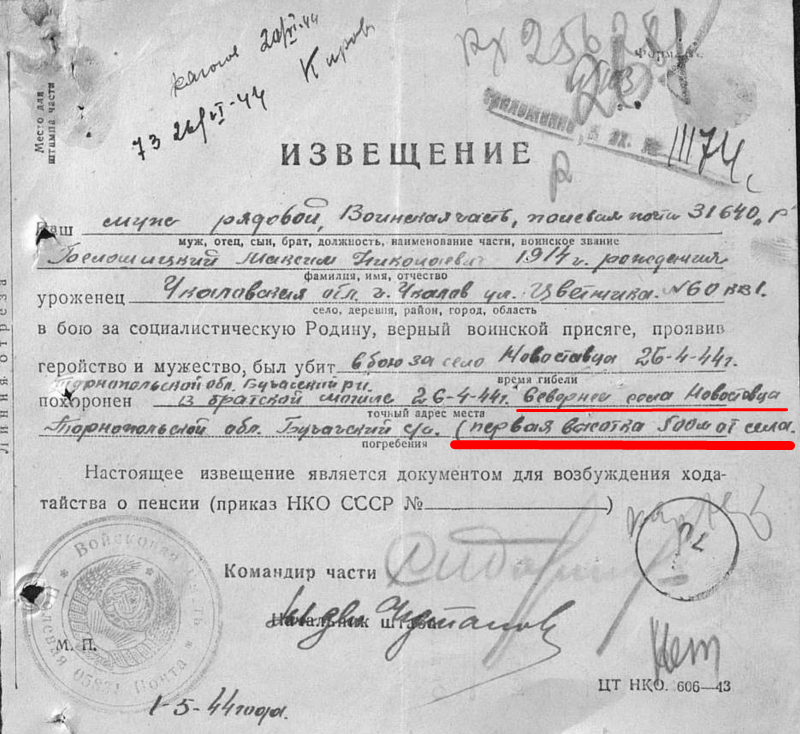 20/VI-44
Киров
73 26/VI-44
Место для
штампа части
11174
ИЗВЕЩЕНИЕ
Ваш муж рядовой, Воинская часть, полевая почта 31640
муж, отец, сын, брат, должность, наименование части, воинское звание
Максим Николаевич 1914 г. рождения
фамилия, имя, отчество
уроженец Чкаловская обл. г. Чкалов ул. Цветника. №60 кв1.
село, деревня, район, город, область
в бою за социалистическую Родину, верный воинской присяге, проявив
геройство и мужество, был убит в бою за село Новоставца 26-4-44г.
время гибели
Тарнопольской обл.
похоронен в братской могиле 26-4-44г. Севернее села Новоставца
точный адрес места
Тарнопольской обл. Бучачский (первая высотка 500м от села.
погребения
Линия отреза
Настоящее извещение является документом для возбуждения хода-
тайства о пенсии (приказ НКО СССР № )
Командир части
Начальник штаба
Войсковая часть
Полевая почта 05831
М. П.
Нет
ЦТ НКО. 606—43
1-5-44 года.